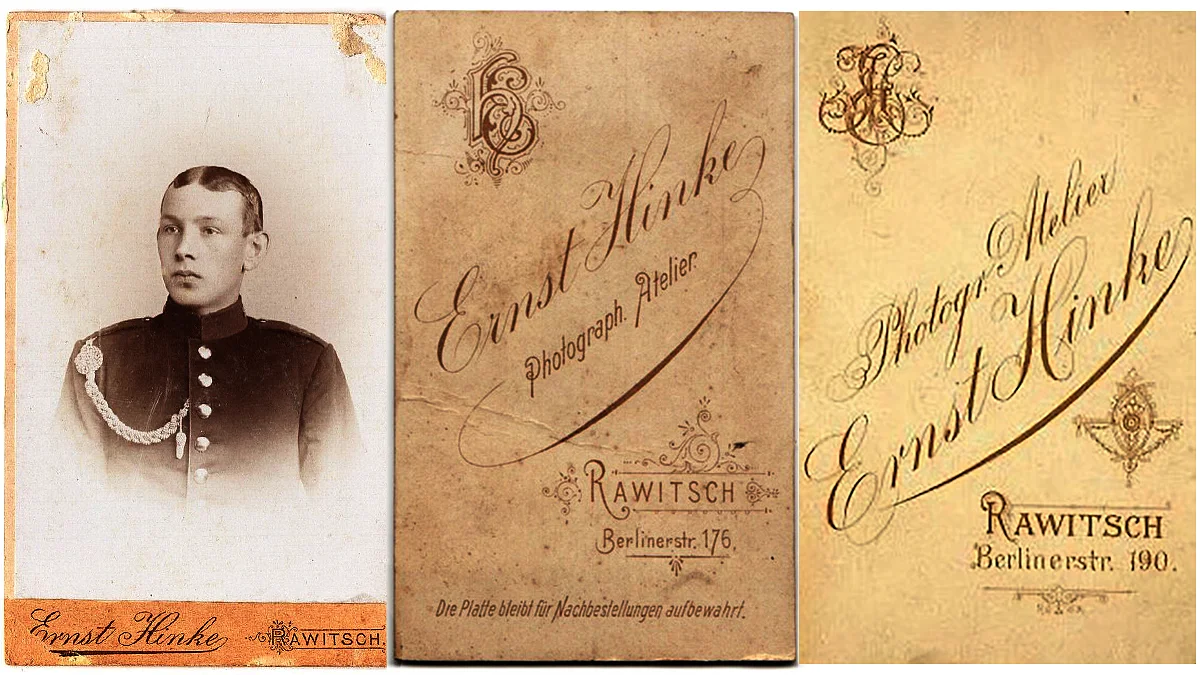 Ernst Hinke
RAWITSCH.
Ernst Hinke
Photograph. Atelier.
RAWITSCH
Berlinerstr. 176,
Die Platte bleibt für Nachbestellungen aufbewahrt.
Photogr. Atelier
Ernst Hinke
RAWITSCH
Berlinerstr. 190.